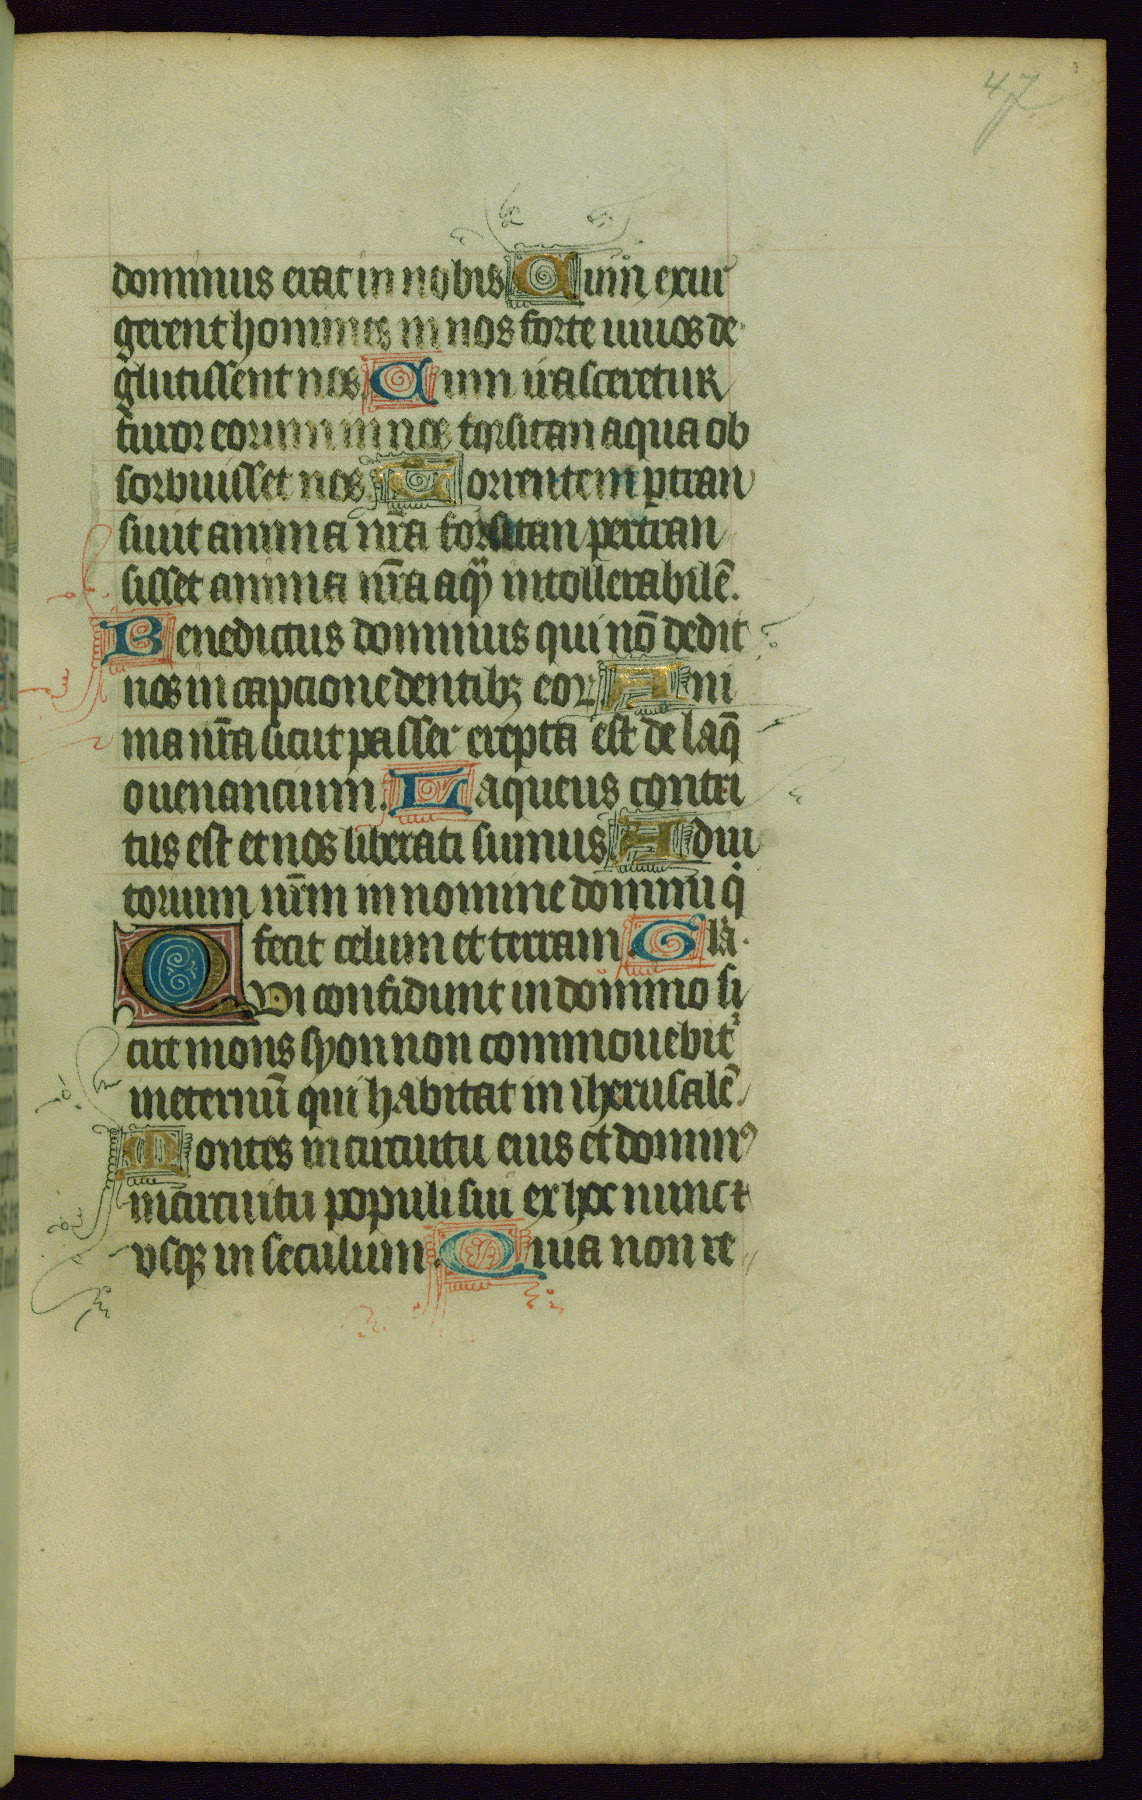 47
dominus erat in nobis Cum exur
gerent homines in nos forte uiuos de
glutissent nos Cum irasceretur
furor eorum in nos forsitan aqua ob
sorbuisset nos Torrentem ꝑtran
siuit anima nr̄a forsitan pertran
sisset anima nr̄a aqͣ intollerabilē.
Benedictus dominus qui nō dedit
nos in capcione dentibꝫ eoꝝ Ani
ma nr̄a sicut passer erepta est de laq̄
o uenancium. Laqueus contri
tus est et nos liberati sumus Adiu
torium nr̄m in nomine domini qͥ
fecit celum et terram. Gl̄a.
Qui confidunt in domino si
cut mons syon non commouebitᷣ
in eternū qui habitat in iherusalē.
Montes in circuitu eius et dominꝰ
in circuitu populi sui ex hoc nunc ⁊
vsqꝫ in seculum. Quia non re